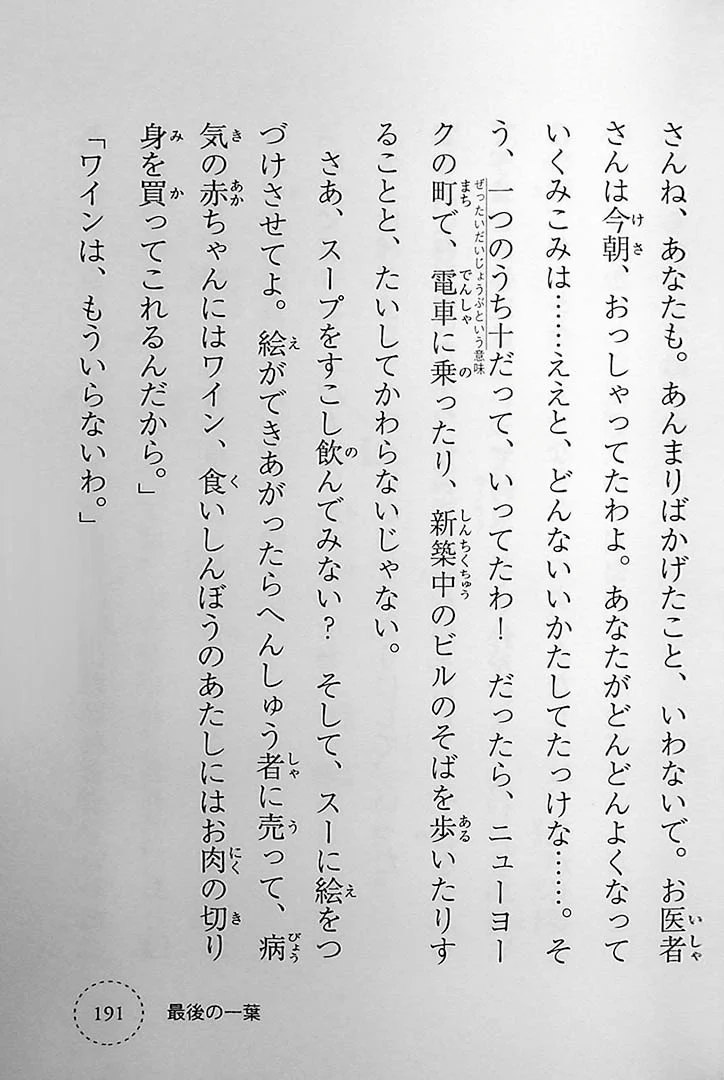 さんね、あなたも。あんまりばかげたこと、いわないで。お医者
さんは今朝、おっしゃってたわよ。あなたがどんどんよくなって
いくみこみは……ええと、どんないいかたしてたっけな……。そ
う、一つのうち十だって、いってたわ！　だったら、ニューヨー
クの町で、電車に乗ったり、新築中のビルのそばを歩いたりす
ることと、たいしてかわらないじゃない。
　さあ、スープをすこし飲んでみない？　そして、スーに絵をつ
づけさせてよ。絵ができあがったらへんしゅう者に売って、病
気の赤ちゃんにはワイン、食いしんぼうのあたしにはお肉の切り
身を買ってこれるんだから。」
「ワインは、もういらないわ。」
いしゃ
けさ
ぜったいだいじょうぶという意味
まち
でんしゃ
の
しんちくちゅう
ある
の
え
え
しゃ
う
びょう
き
あか
く
にく
き
み
か
191
最後の一葉